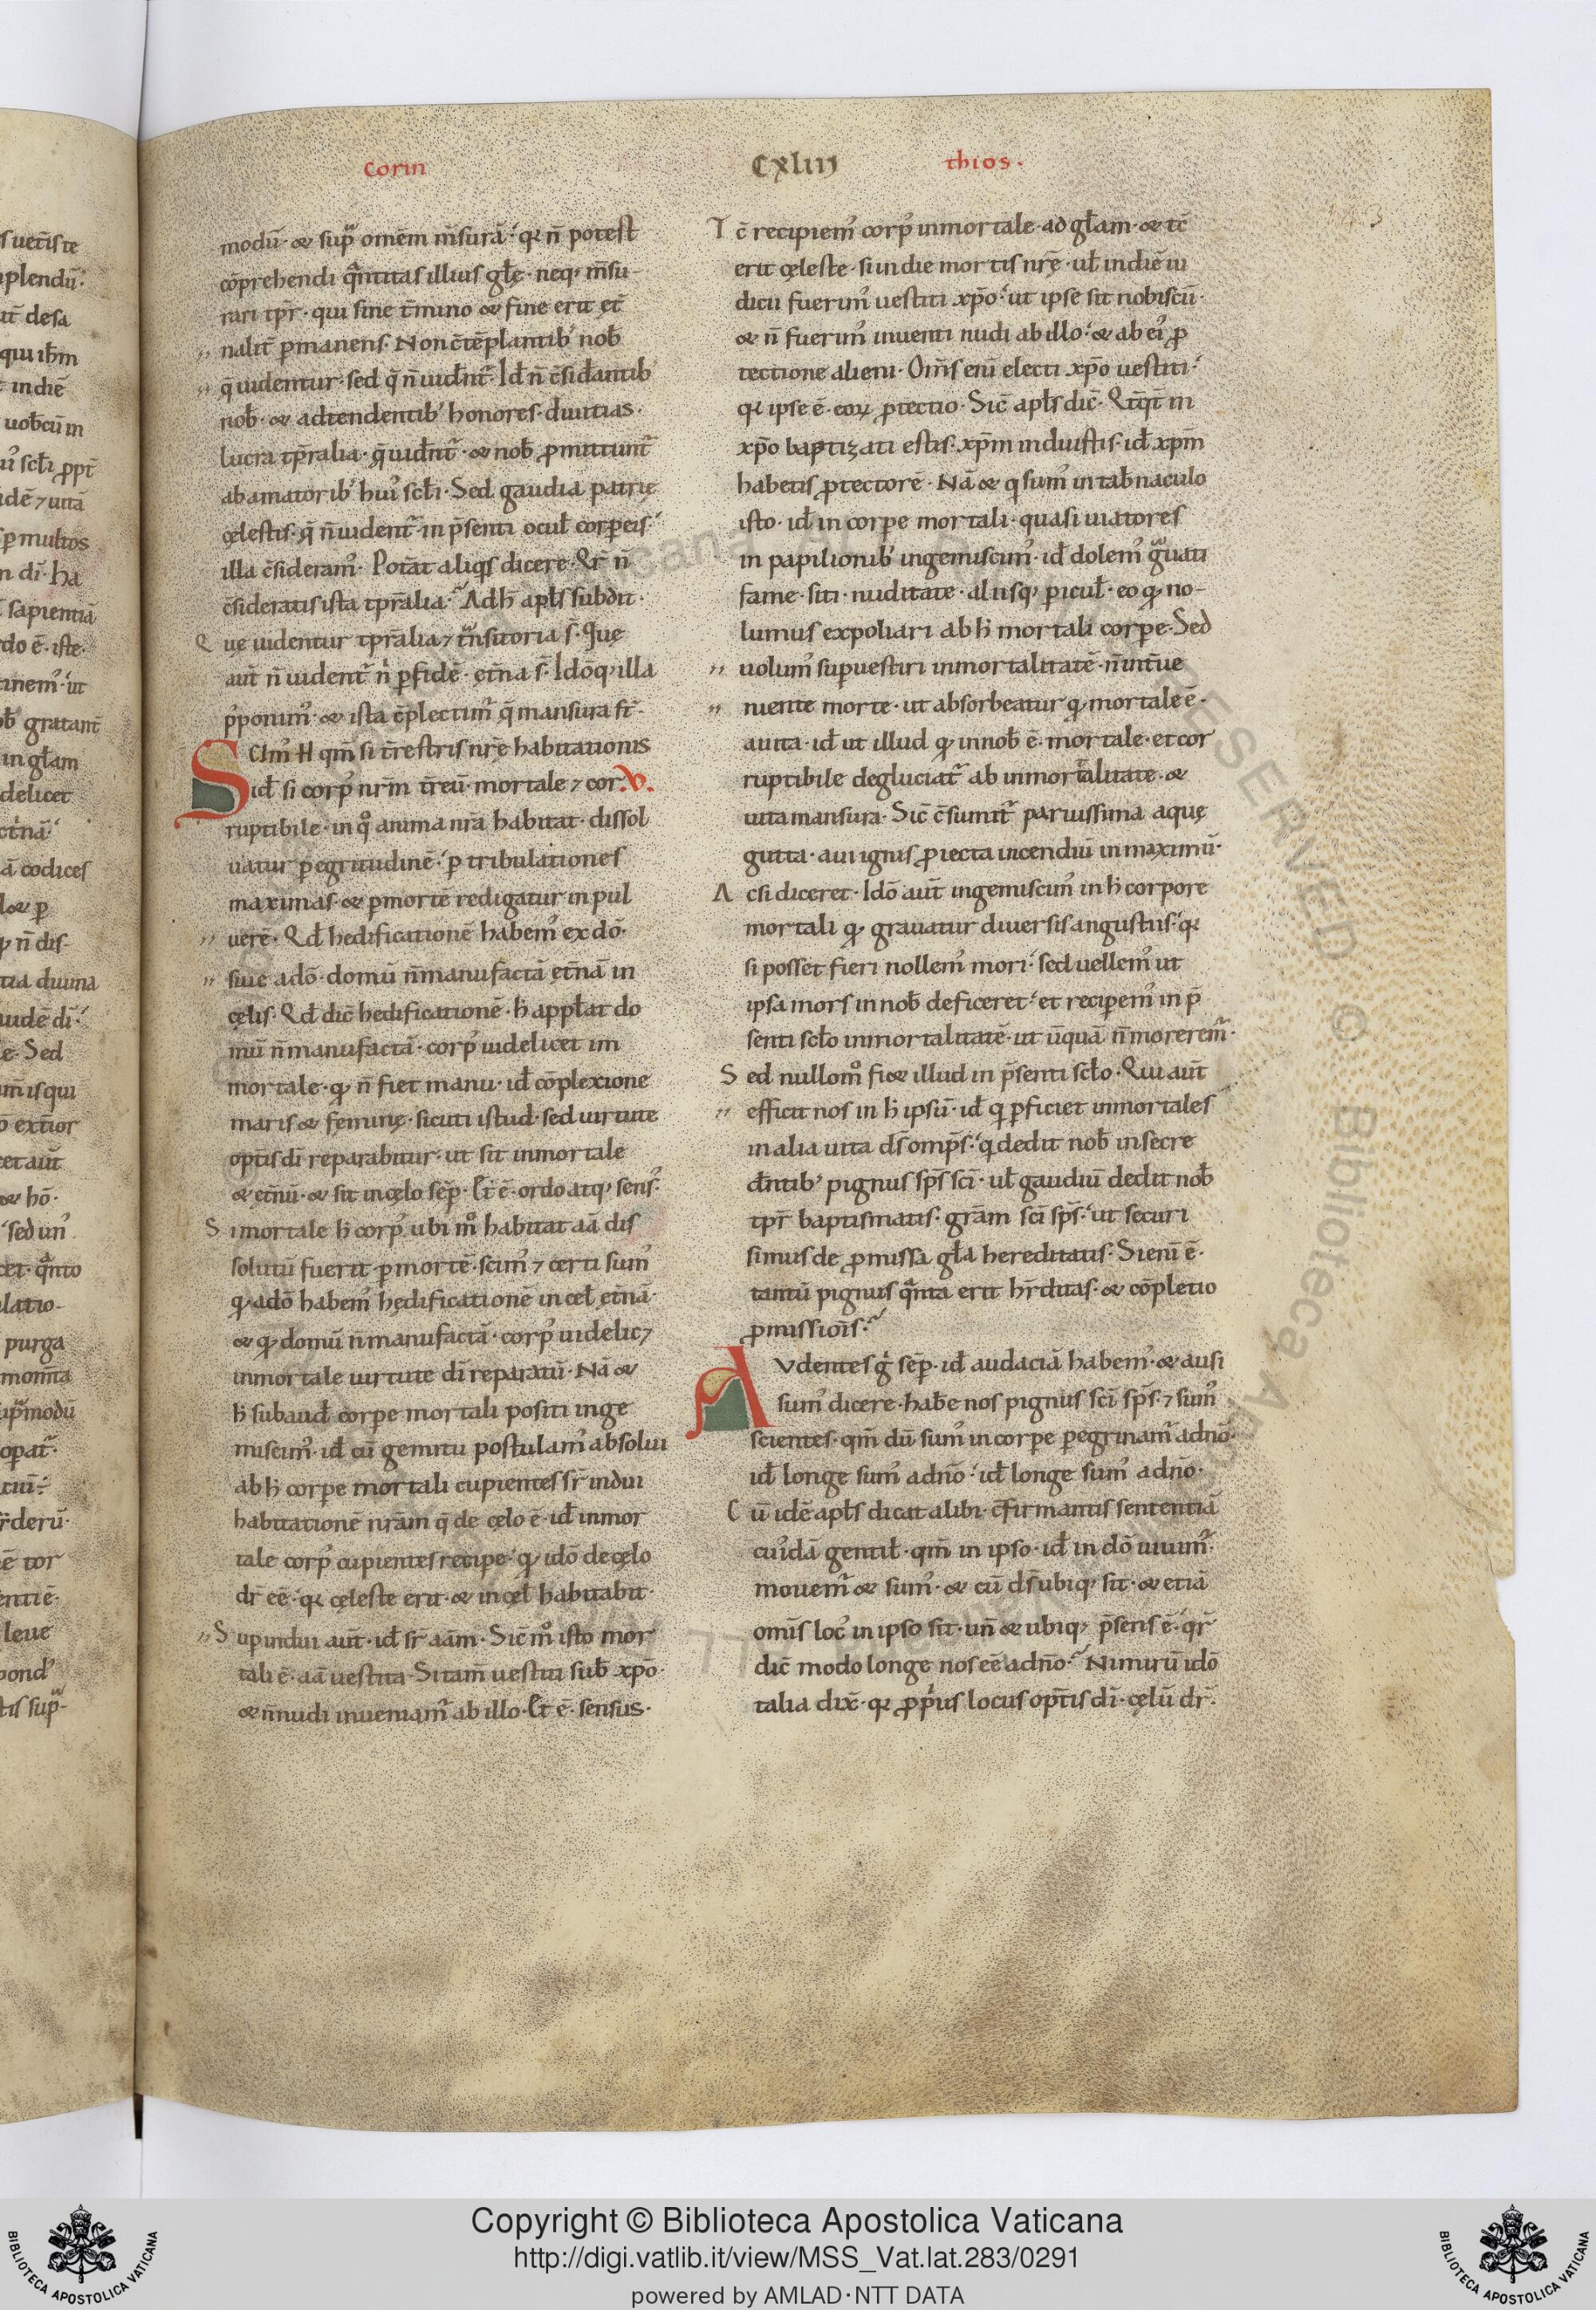 Corin CXLIII thios.
modū· & sup̄ omēm m̄surā· qꝛ n̄ potest
cōprehendi q̄ntitas illius gl̄ę· neq; m̄su-
rari tp̄r· qui sine t̄mino & fine erit et̄
nalit̄ p̄manens· Non c̄tēplantib; nob̄
q̄ uidentur· sed q̄ n̄ uidn̄t̄· Id̄ n̄ c̄sid̄antib;
nob̄· & adtendentib; honores· diuitias·
lucra tp̄ralia· q̄ uidn̄t̄· & nob̄ ꝓmittunt̄
ab amatorib; hui᾽ scl̄i· Sed gaudia patrię
cęlestis· q̄ n̄ uident̄ in p̄senti ocul̄ corꝑeis·
illa c̄sideram᾽· Potāt aliqͥs dicere· Qr̄ n̄
c̄sideratis ista tp̄ralia· Ad h̄ apl̄s subdit·
Quę uidentur tp̄ralia ⁊ t̄nsitoria s̄· Quę
aūt n̄ uident̄ n̄ ꝑ fidē· et̄na s̄· Idōq; illa
p̄ponim᾽· & ista c̄plectim᾽ q̄ mansura st̄·
SCIm᾽ H qm̄ si t̄restris nr̄ę habitationis
id̄ si corp᾽ nr̄m t̄reū· mortale ⁊ cor .V.
ruptibile· in qͦ anima nr̄a habitat· dissol
uatur ꝑ egritudinē· ꝑ tribulationes
maximas· & ꝑ mortē redigatur in pul
uerē· Qd̄ hedificationē habem᾽ ex dō·
siue a dō· domū n̄ manufactā et̄nā in
cęlis· Qd̄ dic̄ hedificationē· h̄ appl̄at do
mū n̄ manufactā· corp᾽ uidelicet im
mortale· qꝫ n̄ fiet manu· id̄ cōplexione
maris & feminę· sicuti istud· sed uirtute
opt̄is dī reparabitur· ut sit inmortale
& et̄nū· & sit in cęlo sēp̄· Et̄ ē· ordo atq; sens᾽·
Si mortale h̄ corp᾽ ubi mͦ habitat aā dis
solutū fuerit ꝑ mortē· scim᾽ ⁊ certi sum᾽
qꝫ a dō habem᾽ hędificationē in cel̄ et̄nā·
& qꝫ domū n̄ manufactā· corp᾽ uidelic⁊
inmortale uirtute dī reparatū· Nā &
h̄ subaud̄ corꝑe mortali positi inge
miscim᾽· id̄ cū gemitu postulam᾽ absolui
ab h̄ corꝑe mortali cupientes sr̄ indui
habitationē nr̄am q̄ de cęlo ē· id̄ inmor
tale corp᾽ cupientes recipe· qꝫ idō de cęlo
dr̄ eē· qꝛ cęleste erit· & in cel̄ habitabit·
Supindui aūt· id̄ sr̄ aām· Sic̄ mͦ isto mor
tali ē· aā uestita· Si tam̄ uestiti sub̄ xp̄o·
& n̄ nudi inueniam᾽ ab illo· Et̄ ē· sensus·
Tc̄ recipiem᾽ corp᾽ inmortale ad gl̄am· & tc̄
erit cęleste· si in die mortis nr̄ę· ul̄ in diē iu
dicii fuerim᾽ uestiti xp̄o· ut ipse sit nobiscū·
& n̄ fuerim᾽ inuenti nudi ab illo· & ab ei᾽ ꝓ
tectione alieni· Om̄s enī electi xp̄o uestiti·
qꝛ ipse ē· eoꝝ ꝓtectio· Sic̄ apl̄s dic̄· Qt̄q̄t in
xp̄o baptizati estis· xp̄m induistis· id̄ xp̄m
habetis ꝓtectorē· Nā & q sum᾽ in tab̄naculo
isto· id̄ in corꝑe mortali· quasi uiatores
in papilionib; ingemiscim᾽· id̄ dolem᾽ g̃uati
fame· siti· nuditate· aliisq; ꝑicul̄· eo qꝫ no-
lumus expoliari ab h̄ mortali corꝑe· Sed
uolum᾽ supuestiri inmortalitatē· n̄ int̄ue
niente morte· ut absorbeatur qꝫ mortale ē·
a uita· id̄ ut illud qꝫ in nob̄ ē· mortale· et cor
ruptibile degluciat̄ ab inmortalitate· &
uita mansura· Sic̄ c̄sumit̄ paruissima aquę
gutta· aui ignis ꝓiecta incendiū in maximū·
Acsi diceret· Idō aūt ingemiscim᾽ in h̄ corpore
mortali qꝫ grauatur diuersis angustiis· qꝛ
si posset fieri nollem᾽ mori· sed uellem᾽ ut
ipsa mors in nob̄ deficeret· et recipem᾽ in p̄
senti scl̄o inmortalitatē· ut ūquā n̄ morerem᾽·
Sed nullo mͦ fi& illud in p̄senti scl̄o· Qui aūt
efficit nos in h̄ ipsū· id̄ q ꝑficiet inmortales
in alia uita ds̄ omp̄s· q dedit nob̄ in se cre
dn̄tib; pignus sp̄s sc̄i· ul̄ gaudiū dedit nob̄
tp̄r baptismatis· gr̄am sc̄i sp̄s· ut securi
simus de ꝓmissa gl̄a hereditatis· Si enī ē·
tantū pignus q̄nta erit hr̄ditas· & cōpletio
ꝓmissiōis·
AVdentes g̊ sēp̄· id̄ audaciā habem᾽· & ausi
sum᾽ dicere· hab̄e nos pignus sc̄i sp̄s· ⁊ sum᾽
scientes· qm̄ dū sum᾽ in corꝑe ꝑegrinam᾽ a dn̄o·
id̄ longe sum᾽ a dn̄o· id̄ longe sum᾽ a dn̄o·
Cū idē apl̄s dicat alibi· c̄firmantis sententiā
cui᾽dā gentil̄· qm̄ in ipso· id̄ in dō uiuim᾽·
mouem᾽ & sum᾽· & cū ds̄ ubiq; sit· & etiā
om̄is loc᾽ in ipso sit· un̄ & ubiq; p̄sens ē· qr̄
dic̄ modo longe nos eē a dn̄o· Nimirū idō
talia dix̄· qꝛ ꝓp̄ius locus opt̄is dī· cęlū dr̄·
Copyright © Biblioteca Apostolica Vaticana
http://digi.vatlib.it/view/MSS_Vat.lat.283/0291
powered by AMLAD·NTT DATA
BIBLIOTECA APOSTOLICA VATICANA
BIBLIOTECA APOSTOLICA VATICANA